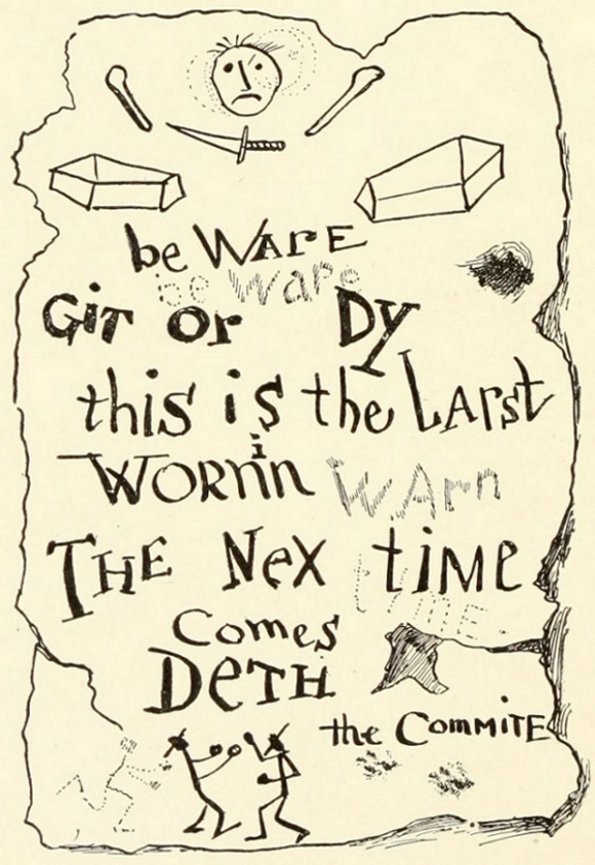 be WArE
be Ware
GiT or DY
this is the LArst
WORNin WArn
THE Nex tiMe
tiMe.
Comes
DeTH
the CommiTE